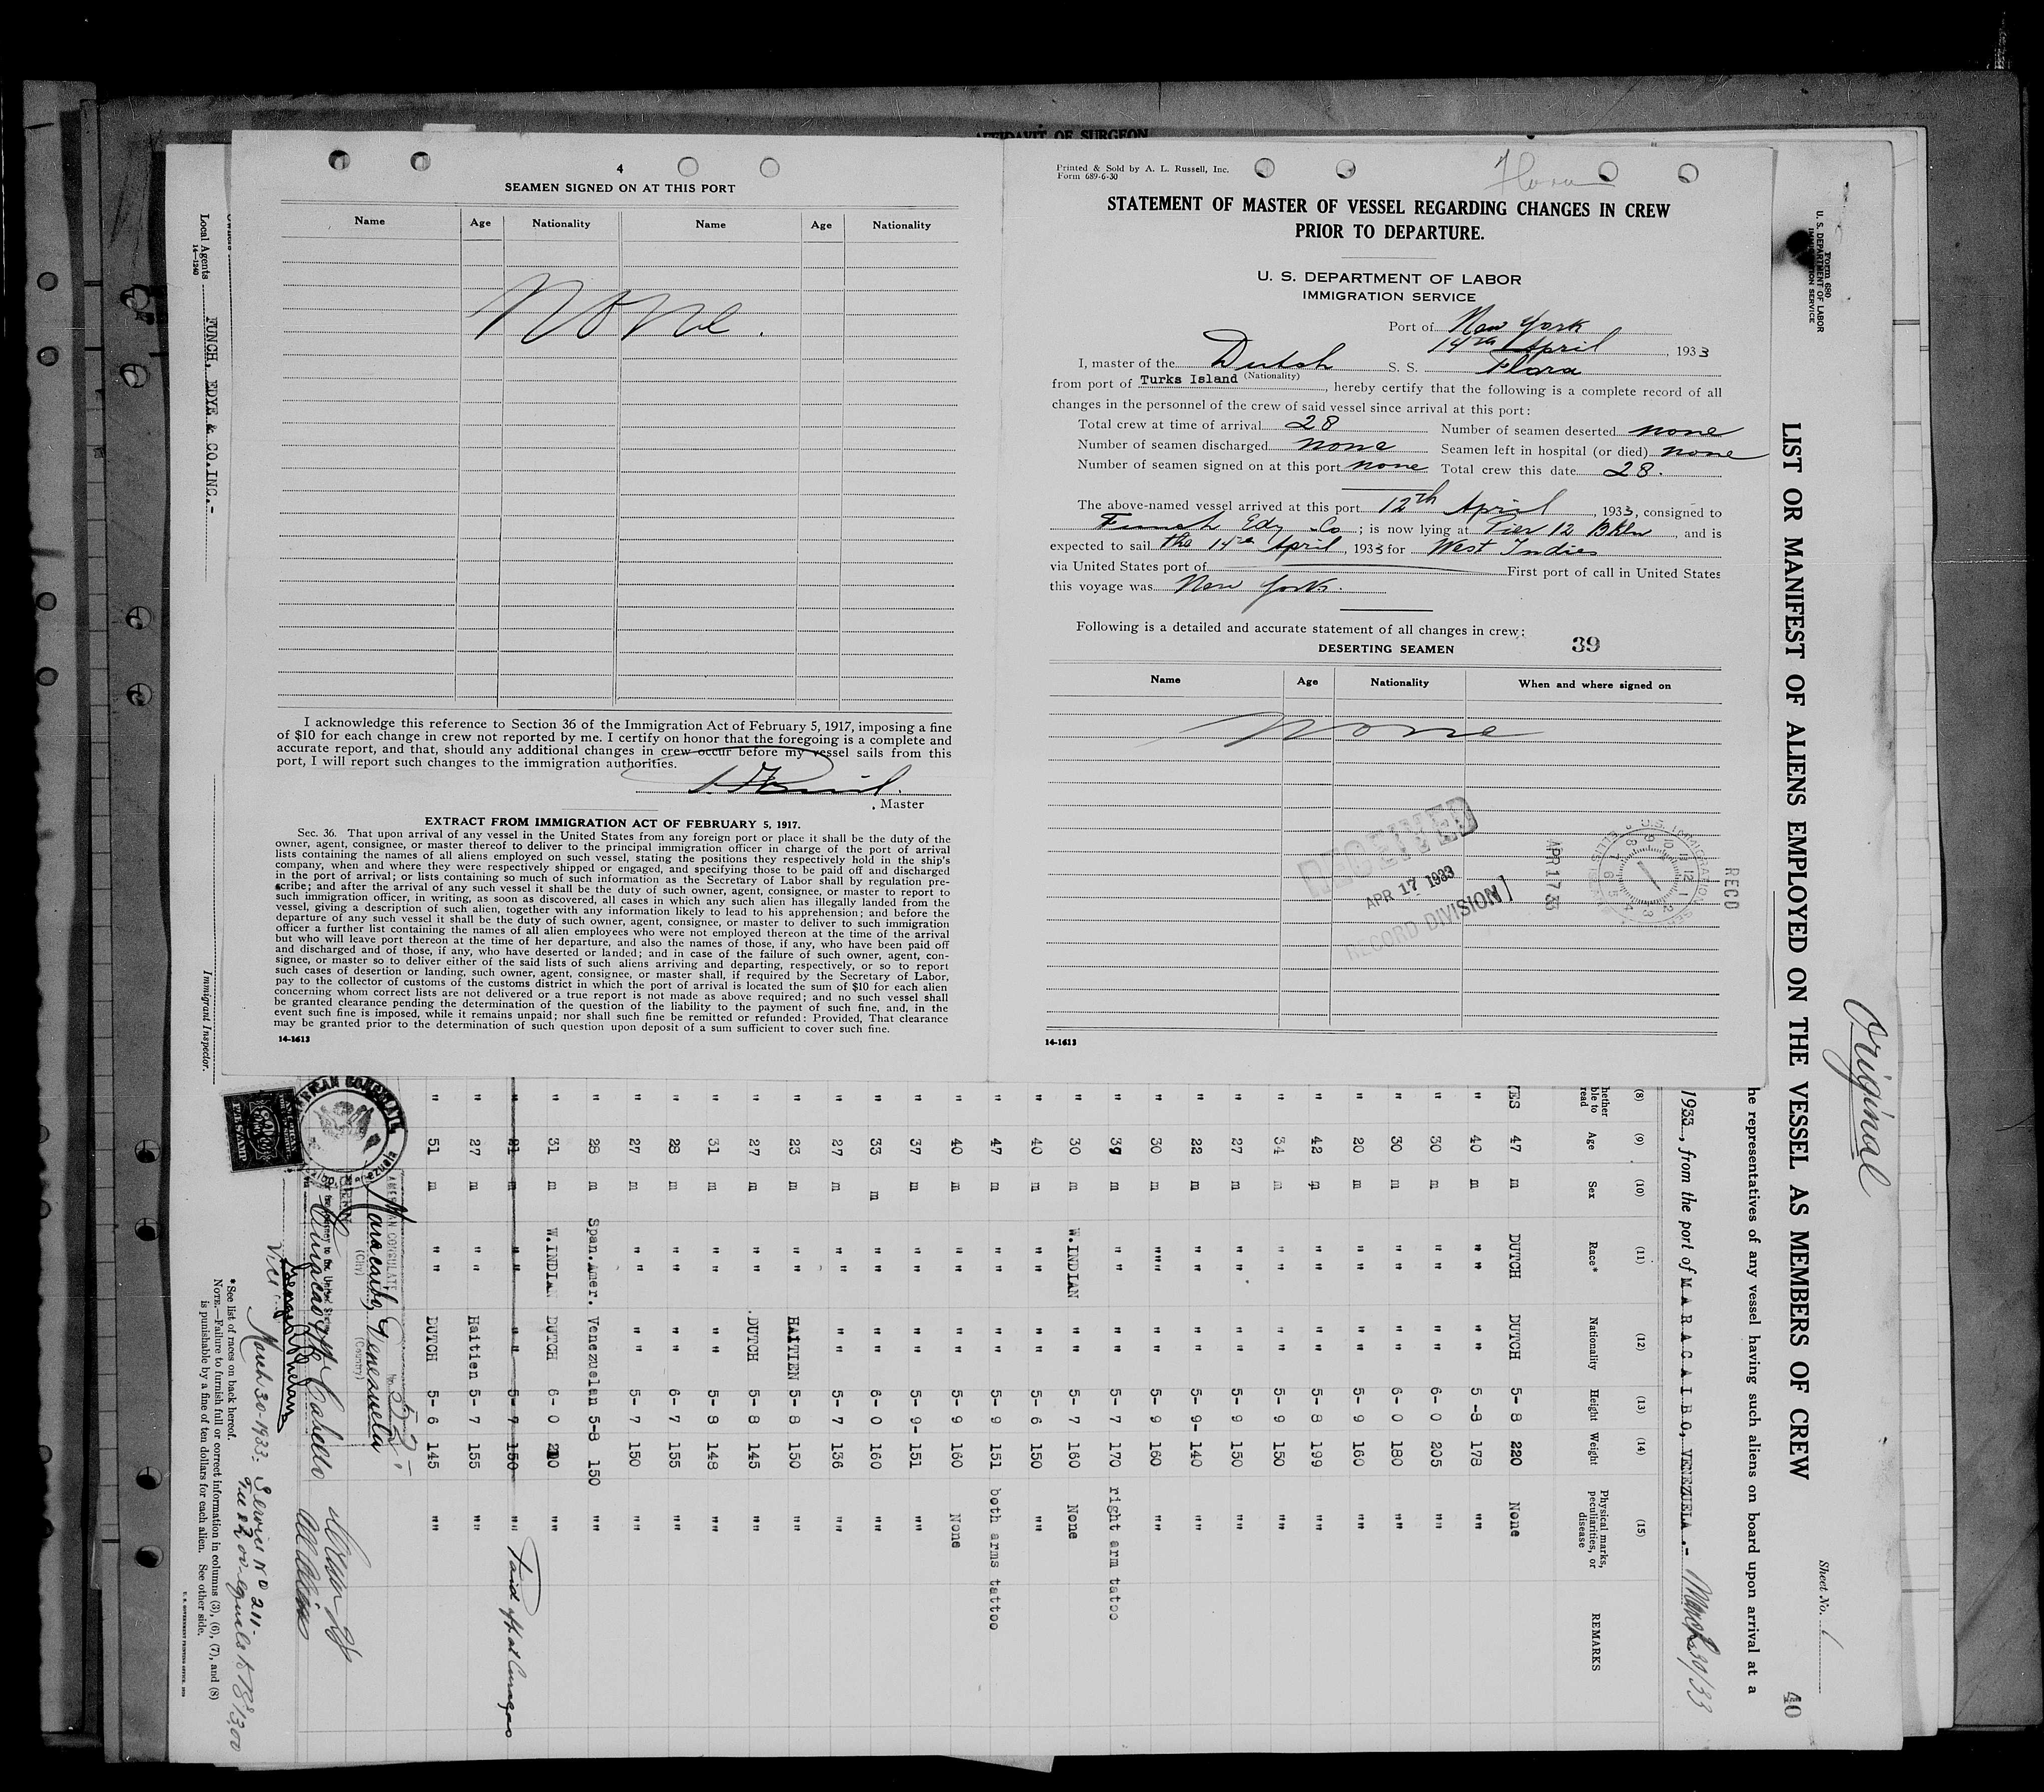 AFFIDAVIT OF SURGEON
4
SEAMEN SIGNED ON AT THIS PORT
Name Age Nationality Name Age Nationality
None.
I acknowledge this reference to Section 36 of the Immigration Act of February 5, 1917, imposing a fine
of $10 for each change in crew not reported by me. I certify on honor that the foregoing is a complete and
accurate report, and that, should any additional changes in crew occur before my vessel sails from this
port, I will report such changes to the immigration authorities.
, Master
EXTRACT FROM IMMIGRATION ACT OF FEBRUARY 5, 1917.
Sec. 36. That upon arrival of any vessel in the United States from any foreign port or place it shall be the duty of the
owner, agent, consignee, or master thereof to deliver to the principal immigration officer in charge of the port of arrival
lists containing the names of all aliens employed on such vessel, stating the positions they respectively hold in the ship's
company, when and where they were respectively shipped or engaged, and specifying those to be paid off and discharged
in the port of arrival; or lists containing so much of such information as the Secretary of Labor shall by regulation pre-
scribe; and after the arrival of any such vessel it shall be the duty of such owner, agent, consignee, or master to report to
such immigration officer, in writing, as soon as discovered, all cases in which any such alien has illegally landed from the
vessel, giving a description of such alien, together with any information likely to lead to his apprehension; and before the
departure of any such vessel it shall be the duty of such owner, agent, consignee, or master to deliver to such immigration
officer a further list containing the names of all alien employees who were not employed thereon at the time of the arrival
but who will leave port thereon at the time of her departure, and also the names of those, if any, who have been paid off
and discharged and of those, if any, who have deserted or landed; and in case of the failure of such owner, agent, con-
signee, or master so to deliver either of the said lists of such aliens arriving and departing, respectively, or so to report
such cases of desertion or landing, such owner, agent, consignee, or master shall, if required by the Secretary of Labor,
pay to the collector of customs of the customs district in which the port of arrival is located the sum of $10 for each alien
concerning whom correct lists are not delivered or a true report is not made as above required; and no such vessel shall
be granted clearance pending the determination of the question of the liability to the payment of such fine, and, in the
event such fine is imposed, while it remains unpaid; nor shall such fine be remitted or refunded: Provided, That clearance
may be granted prior to the determination of such question upon deposit of a sum sufficient to cover such fine.
14-1613
Printed & Sold by A. L. Russell, Inc.
Form 689-6-30
Flora
STATEMENT OF MASTER OF VESSEL REGARDING CHANGES IN CREW
PRIOR TO DEPARTURE.
U. S. DEPARTMENT OF LABOR
IMMIGRATION SERVICE
Port of New York
14th April, 1933
I, master of the Dutch S. S. Flora
(Nationality)
from port of Turks Island, hereby certify that the following is a complete record of all
changes in the personnel of the crew of said vessel since arrival at this port:
Total crew at time of arrival 28 Number of seamen deserted none
Number of seamen discharged none Seamen left in hospital (or died) none
Number of seamen signed on at this port none Total crew this date 28.
The above-named vessel arrived at this port 12th April, 1933, consigned to
Funch Edy Co; is now lying at Pier 12 Bkln, and is
expected to sail the 14th April, 1933 for West Indies
via United States port of First port of call in United States
this voyage was New York.
Following is a detailed and accurate statement of all changes in crew:
39
DESERTING SEAMEN
Name Age Nationality When and where signed on
None
RECEIVED
APR 17 1933
RECORD DIVISION
APR 17 33
U.S. IMMIGRATION
RECD
14-1613
Form 680
U. S. DEPARTMENT OF LABOR
IMMIGRATION SERVICE
Original
LIST OR MANIFEST OF ALIENS EMPLOYED ON THE VESSEL AS MEMBERS OF CREW
Sheet No. 1
40
he representatives of any vessel having such aliens on board upon arrival at a
1933, from the port of MARACAIBO, VENEZUELA.- March 30/33
(8) (9) (10) (11) (12) (13) (14) (15)
hether ble to read Age Sex Race* Nationality Height Weight Physical marks, peculiarities, or disease REMARKS
ES 47 m DUTCH DUTCH 5- 8 220 None
" 40 m " " " " 5 -8 178 ""
" 30 m " " " " 6- 0 205 ""
" 30 m " " " " 6- 0 180 ""
" 20 m " " " " 5- 9 160 ""
" 42 m " " " " 5- 8 199 ""
" 34 m " " " " 5- 9 150 ""
" 27 m " " " " 5- 9 150 ""
" 22 m " " " " 5- 9- 140 ""
" 30 m "" " " 5- 9 160 ""
" 39 m " " " " 5- 7 170 right arm tatoo
" 30 m W.INDIAN " " 5- 7 160 None
" 40 m " " " " 5- 6 150 ""
" 47 m " " " " 5- 9 151 both arms tattoo
" 40 m " " " " 5- 9 160 None
" 37 m " " " " 5- 9- 151 ""
" 33 m " " " " 6- 0 160 ""
" 27 m " " " " 5- 7 136 ""
" 23 m " " HAITIEN 5- 8 150 ""
" 27 m " " DUTCH 5- 8 145 ""
" 31 m " " " " 5- 8 148 ""
" 28 m " " " " 6- 7 155 ""
" 27 m " " " " 5- 7 150 ""
" 28 m Span.Amer. Venezuelan 5-8 150 ""
" 31 m W.INDIAN DUTCH 6- 0 210 ""
" 21 m " " " " 5- 7 150 "" Paid off at Curaçao
" 27 m " " Haitien 5- 7 155 ""
" 51 m " " DUTCH 5- 6 145 ""
AMERICAN CONSULATE
Maracaibo, Venezuela
(City) (Country)
AMERICAN CONSULATE
journey to the United States
Curaçao Cabello
March 30-1933. Service No 211-
*See list of races on back hereof.
NOTE.—Failure to furnish full or correct information in columns (3), (6), (7), and (8)
is punishable by a fine of ten dollars for each alien. See other side.
U. S. GOVERNMENT PRINTING OFFICE
Local Agents FUNCH, EDYE & CO.INC.-
14-1240
Immigrant Inspector.